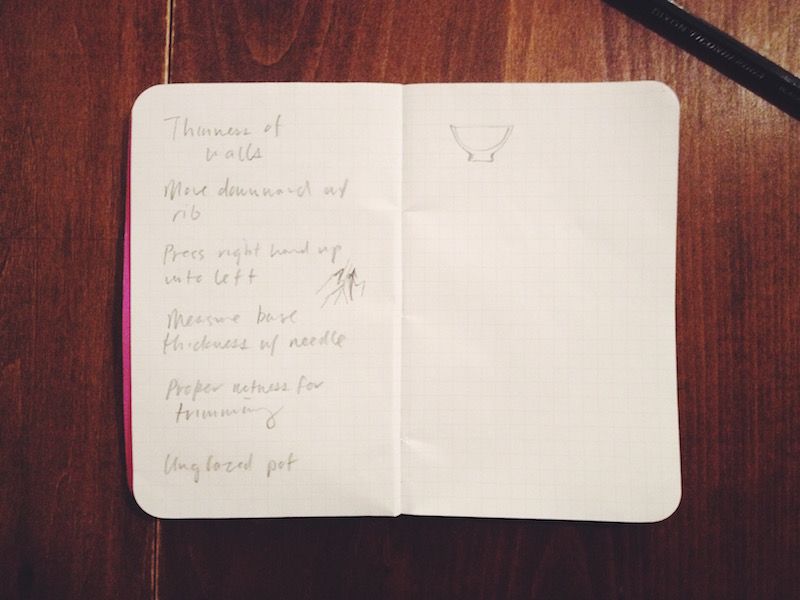 Thinness of
walls
Move downward w/
rib
Press right hand up
into left
Measure base
thickness w/ needle
Proper wetness for
trimming
Unglazed pot
DIXON TICONDEROGA